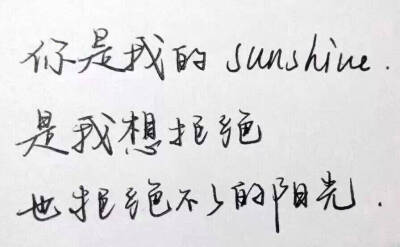 你是我的 sunshine.
是我想拒绝
也拒绝不了的阳光.